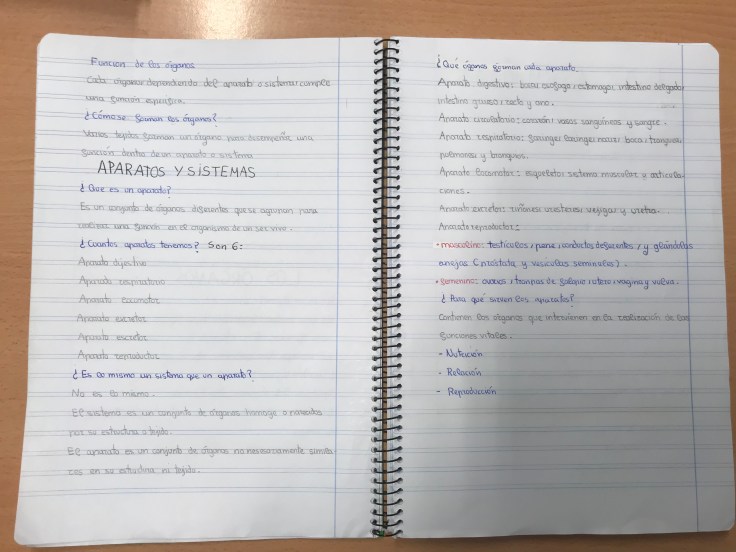 Funcion de los órganos
Cada órgano dependiendo del aparato o sistema cumple
una función específica.
¿Cómo se forman los órganos?
Varios tejidos forman un órgano para desempeñar una
función dentro de un aparato o sistema
APARATOS Y SISTEMAS
¿Que es un aparato?
Es un conjunto de órganos diferentes que se agrupan para
realizar una función en el organismo de un ser vivo.
¿Cuantos aparatos tenemos? Son 6:
Aparato dijestivo
Aparato respiratorio
Aparato locomotor
Aparato excretor
Aparato reproductor
¿Es lo mismo un sistema que un aparato?
No es lo mismo.
El sistema es un conjunto de órganos
por su estructura o tejido.
El aparato es un conjunto de órganos no necesariamente simila
res en su estructura ni tejido.
¿Qué órganos forman cada aparato.
Aparato digestivo: boca, esófago, estomago, intestino delgado,
intestino grueso, recto y ano.
Aparato circulatorio: corazón, vasos sanguíneos y sangre.
Aparato respiratorio: faringe, laringe, boca, traquea,
pulmones y bronquios.
Aparato locomotor: esqueleto, sistema muscular y articula-
ciones.
Aparato excretor: riñones, uréteres, vejiga y uretra.
Aparato reproductor:
• masculino: testículos, pene, conductos deferentes, y glándulas
anejas (próstata y vesículas seminales).
• femenino: ovarios, trompas de falopio, útero, vagina y vulva.
¿Para qué sirven los aparatos?
Contienen los órganos que intervienen en la realización de las
funciones vitales.
- Nutrición
- Relación
- Reproducción